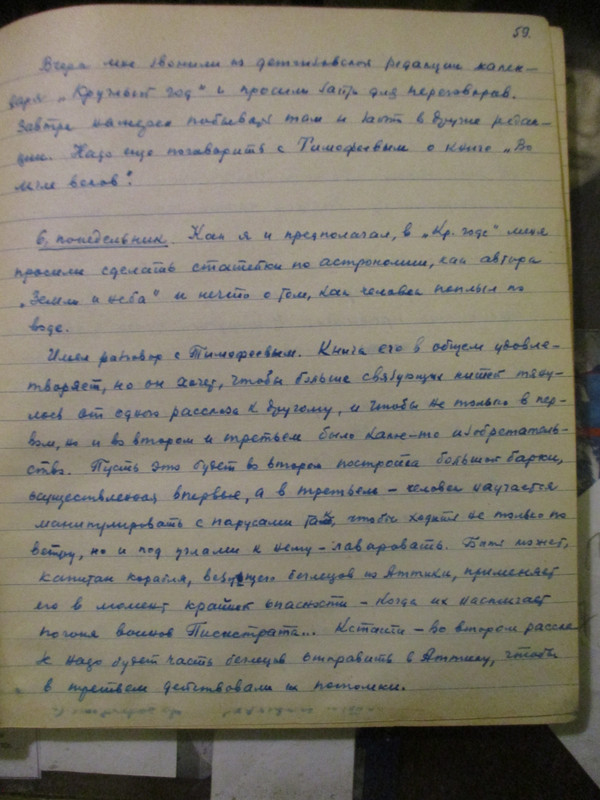 59.
Вчера мне звонили из детгизовской редакции кален-
даря „Круглый год" и просили быть для переговоров.
Завтра надеюсь побывать там и в других редак-
ции. Надо еще поговорить с Тимофеевым о книге „Во
мгле веков".
6, понедельник. Как я и предполагал, в „Кр. годе" меня
просили сделать статейки по астрономии, как автора
„Земли и неба" и нечто о том, как человек поплыл по
воде.
Имел разговор с Тимофеевым. Книга его в общем удовле-
творяет, но он хочет, чтобы больше связующих нитей тяну-
лось от одного рассказа к другому, и чтобы не только в пер-
вом, но и во втором и третьем было какое-то изобретатель-
ство. Пусть это будет во втором постройка большой барки,
осуществленная впервые, а в третьем – человек научается
манипулировать с парусами так, чтобы ходить не только по
ветру, но и под углами к нему – лавировать. Быть может,
капитан корабля, везущего беглецов из Аттики, применяет
его в момент крайней опасности – когда их настигает
погоня воинов Писистрата... Кстати – во втором расска-
зе надо будет часть беглецов отправить в Аттику, чтобы
в третьем действовали их потомки.